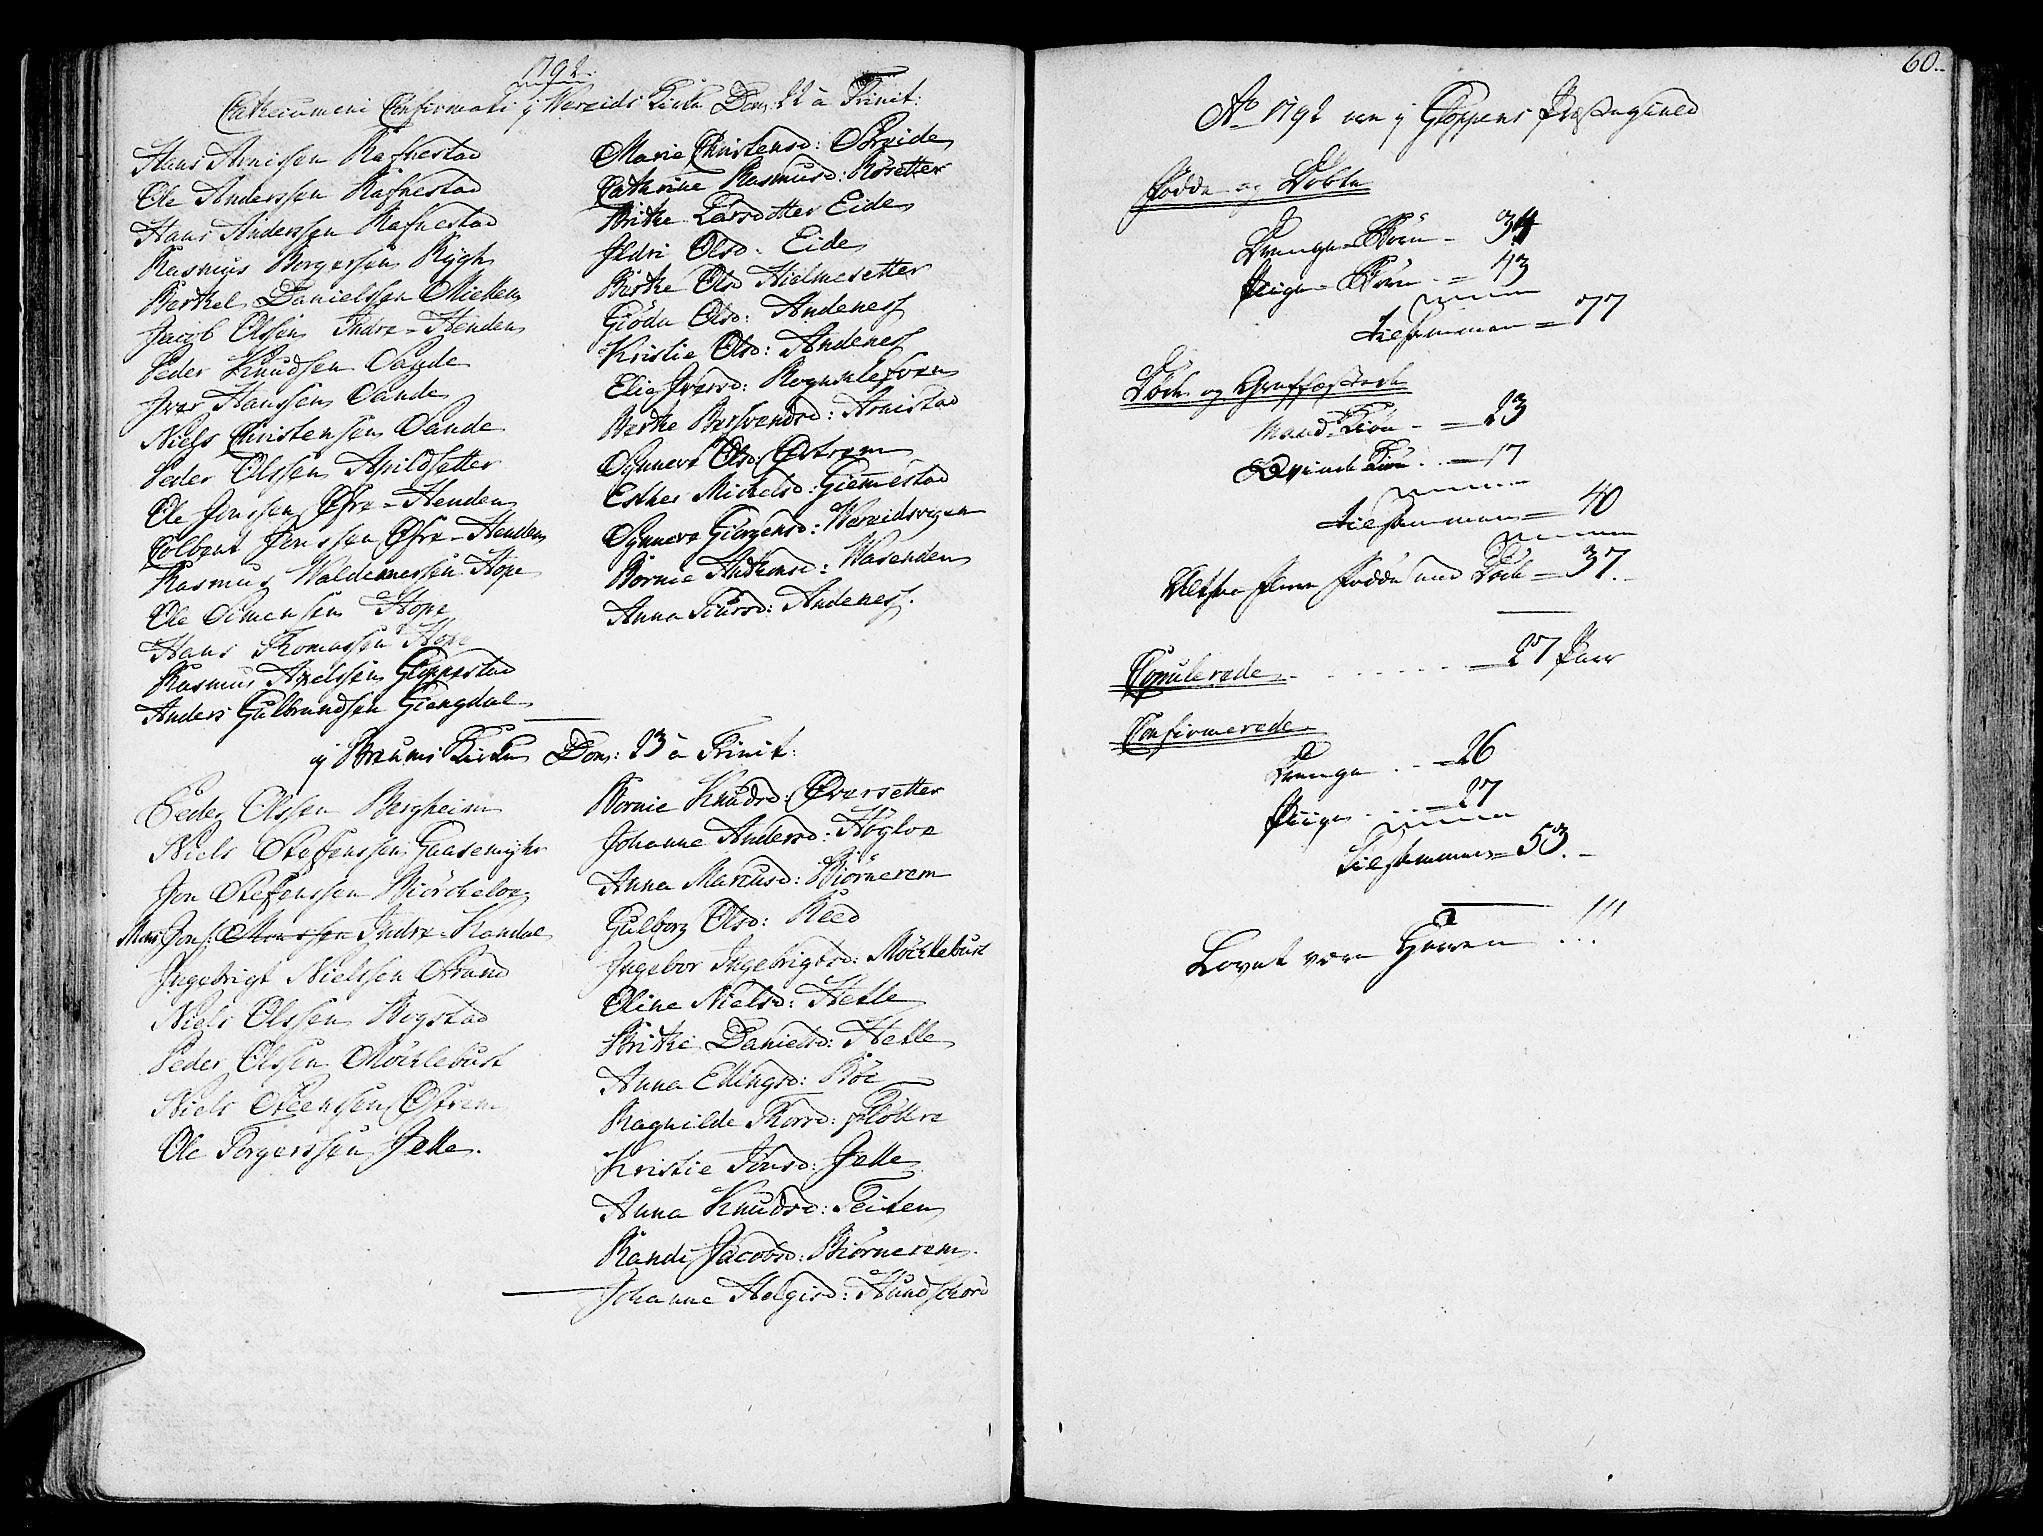 1792.
Catecumeni Confirmati j Wereids Kirke Dom: 22 a Trinit:
Hans Arnissen Rafnestad
Ole Anderssen Rafnestad
Hans Anderssen Rafnestad
Rasmus Borgerssen Rygh
Berthel Danielssen Micklen
Jacob Olssen Indre-Henden
Peder Knudssen Sande
Iver Hanssen Sande
Niels Christensen Sande
Peder Olssen Apildsetter
Ole Jonssen Øfre-Henden
Colbent Jenssen Øfre-Henden
Rasmus Waldemerssen Hope
Ole Simenssen Hope
Hans Thomassen Hope
Rasmus Axelssen Gloppestad
Anders Gulbrandssen Giengdal
Marie Christensd: Østreide
Cathrine Rasmusd: Røsetter
Brithe Larsdotter Eide
Ildri Olsd: Eide
Birthe Olsd Hielmesetter
Giøda Olsd: Andenes
Kristie Olsd: Andenes
Elie Iversd: Rognklefven
Berthe Bersvendsd: Arnistad
Synneve Olsd: Østrem
Esther Michelsd: Giemestad
Synneve Giørgensd: Wereidsvigen
Bornie Anthonsd: Wasenden
Anna Siursd: Andenes.
j Breums Kirke Dom: 23 a Trinit:
Peder Olssen Bergheim
Niels Steffenssen Gaasemyhr
Jon Steffenssen Biørcheloe
Mons Jons: Monssen Indre-Kandal
Ingebrigt Nielssen Strand
Niels Olssen Bogstad
Peder Olssen Møcklebust
Niels Steenssen Østrem
Ole Torgerssen Felle.
Bornie Knudsd: Øversetter
Johanne Andersd: Høgloe
Anna Marcusd: Biørnerem
Gulborg Olsd: Reed
Ingebor Ingebrigtsd: Møcklebust
Oline Nielsd: Hetle
Brithe Danielsd: Hetle
Anna Ellingsd: Bøe
Ragnilde Thorsd: Fløttre
Kristie Jonsd: Felle
Anna Knudsd: Teiten
Rande Jacobsd: Biørnerem.
Johanne Helgesd: Hundschord
60.
Ao 1792 ere j Gloppens Præstegield
Fødde og Døbte
Drenge-Børn - 34
Piige-Børn - = 43
tilsammen = 77
Døde og Graffæstede
Mand-Kiøn - = 23
Qvinde Kiøn - = 17
tilsammen = 40
Altsaa flere Fødde end Døde = 37.-
Copulerede - - - - = 27 Paar
Confirmerede
Drenge . - = 26
Piiger . . . = 27
Tilsammen = 53.-
Lovet være Herren !!!